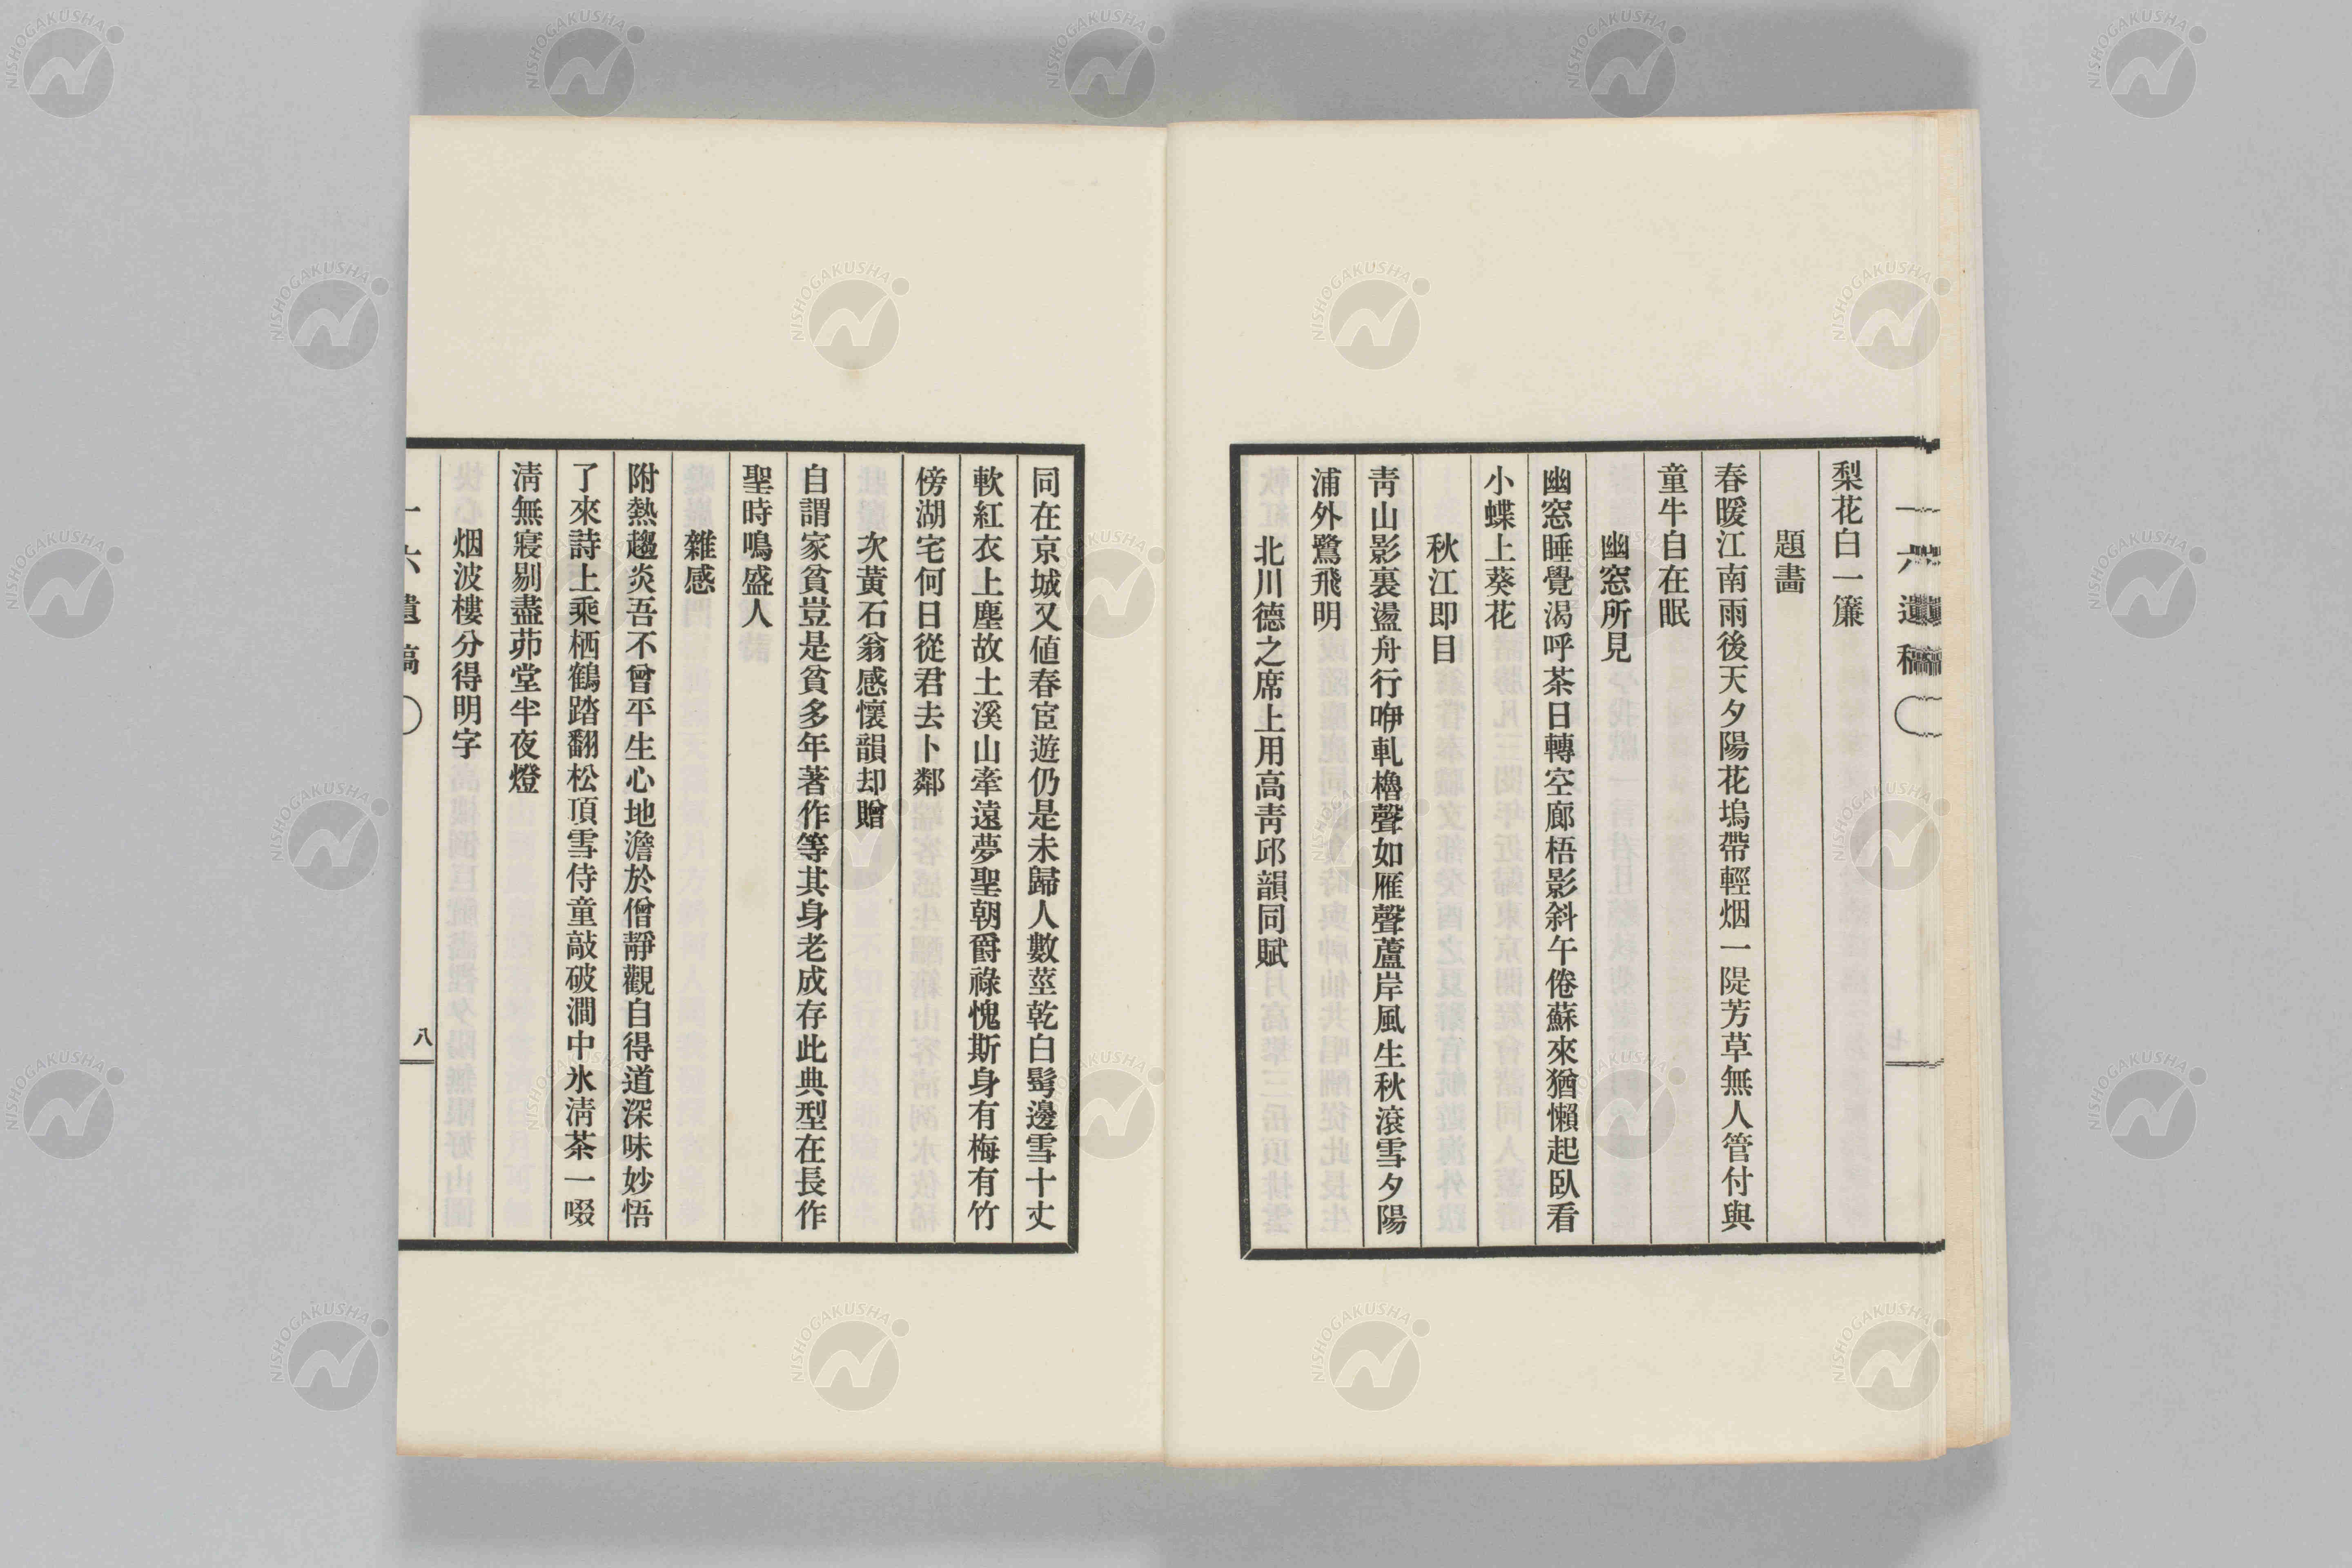 一六遺稿
梨花白一簾
題畵
春暖江南雨後天夕陽花塢帶輕烟一隄芳草無人管付與
童牛自在眠
幽窓所見
幽窓睡覺渴呼茶日轉空廊梧影斜午倦蘇來猶懶起臥看
小蝶上葵花
秋江即目
靑山影裏盪舟行咿軋櫓聲如雁聲蘆岸風生秋滾雪夕陽
浦外鷺飛明
北川德之席上用高靑邱韻同賦
同在京城又値春宦遊仍是未歸人數莖乾白鬢邊雪十丈
軟紅衣上塵故土溪山牽遠夢聖朝爵祿愧斯身有梅有竹
傍湖宅何日從君去卜鄰
次黃石翁感懷韻却贈
自謂家貧豈是貧多年著作等其身老成存此典型在長作
聖時鳴盛人
雜感
附熱趨炎吾不曾平生心地澹於僧靜觀自得道深味妙悟
了來詩上乘栖鶴踏翻松頂雪侍童敲破澗中氷淸茶一啜
淸無寢剔盡茆堂半夜燈
烟波樓分得明字
一六遺稿
八
NISHOGAKUSHA